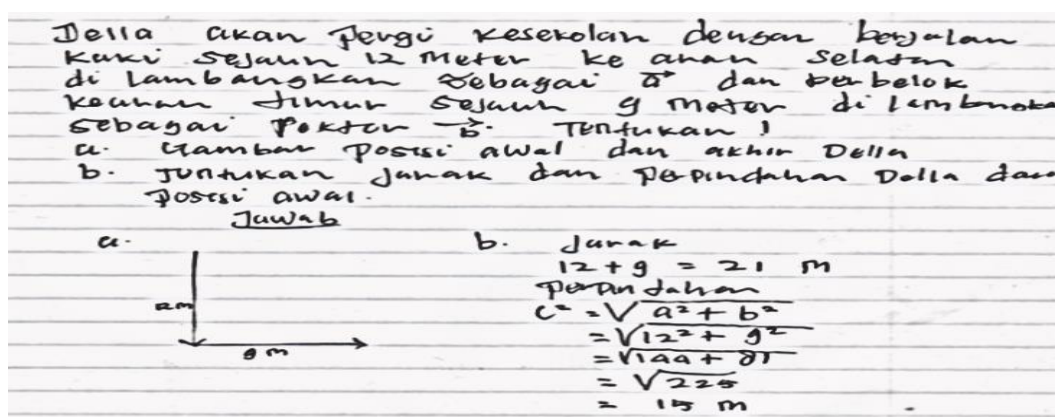 Della akan pergi kesekolah dengan berjalan
kaki sejauh 12 meter ke arah selatan
di lambangkan sebagai a→ dan berbelok
kearah timur sejauh 9 meter di lambangka
sebagai vektor b→. Tentukan!
a. Gambar posisi awal dan akhir Della
b. Tuntukan jarak dan perpindahan Della dari
posisi awal.
Jawab
a.
12 m
9 m
b. Jarak
12 + 9 = 21 m
Perpindahan
c² = √a² + b²
= √12² + 9²
= √144 + 81
= √225
= 15 m